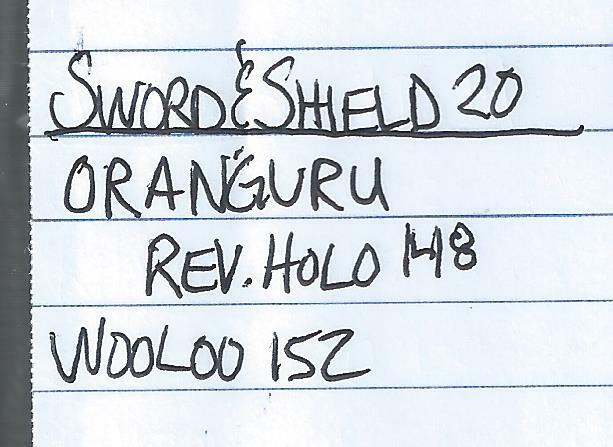 SWORD & SHIELD 20
ORANGURU
REV. HOLO 148
WOOLOO 152